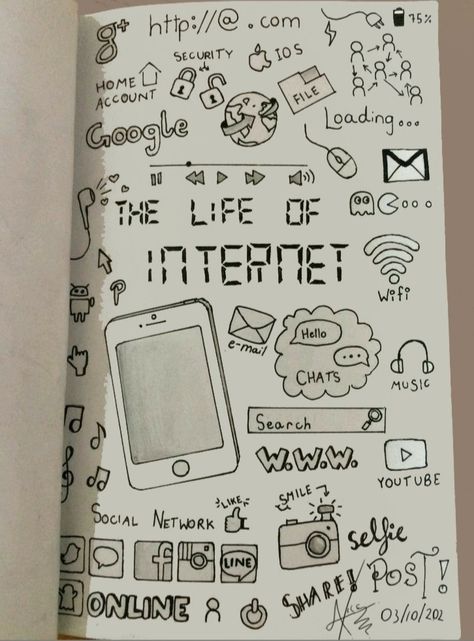 g+
http://@.com
75%
SECURITY
IOS
HOME
ACCOUNT
FILE
Google
Loading...
THE LIFE OF
INTERNET
Wifi
e-mail
Hello
...
CHATS
MUSIC
Search
W.W.W.
YOUTUBE
LIKE
SMILE
SOCIAL NETWORK
selfie
f
LINE
SHARE!
POST!
ONLINE
03/10/202